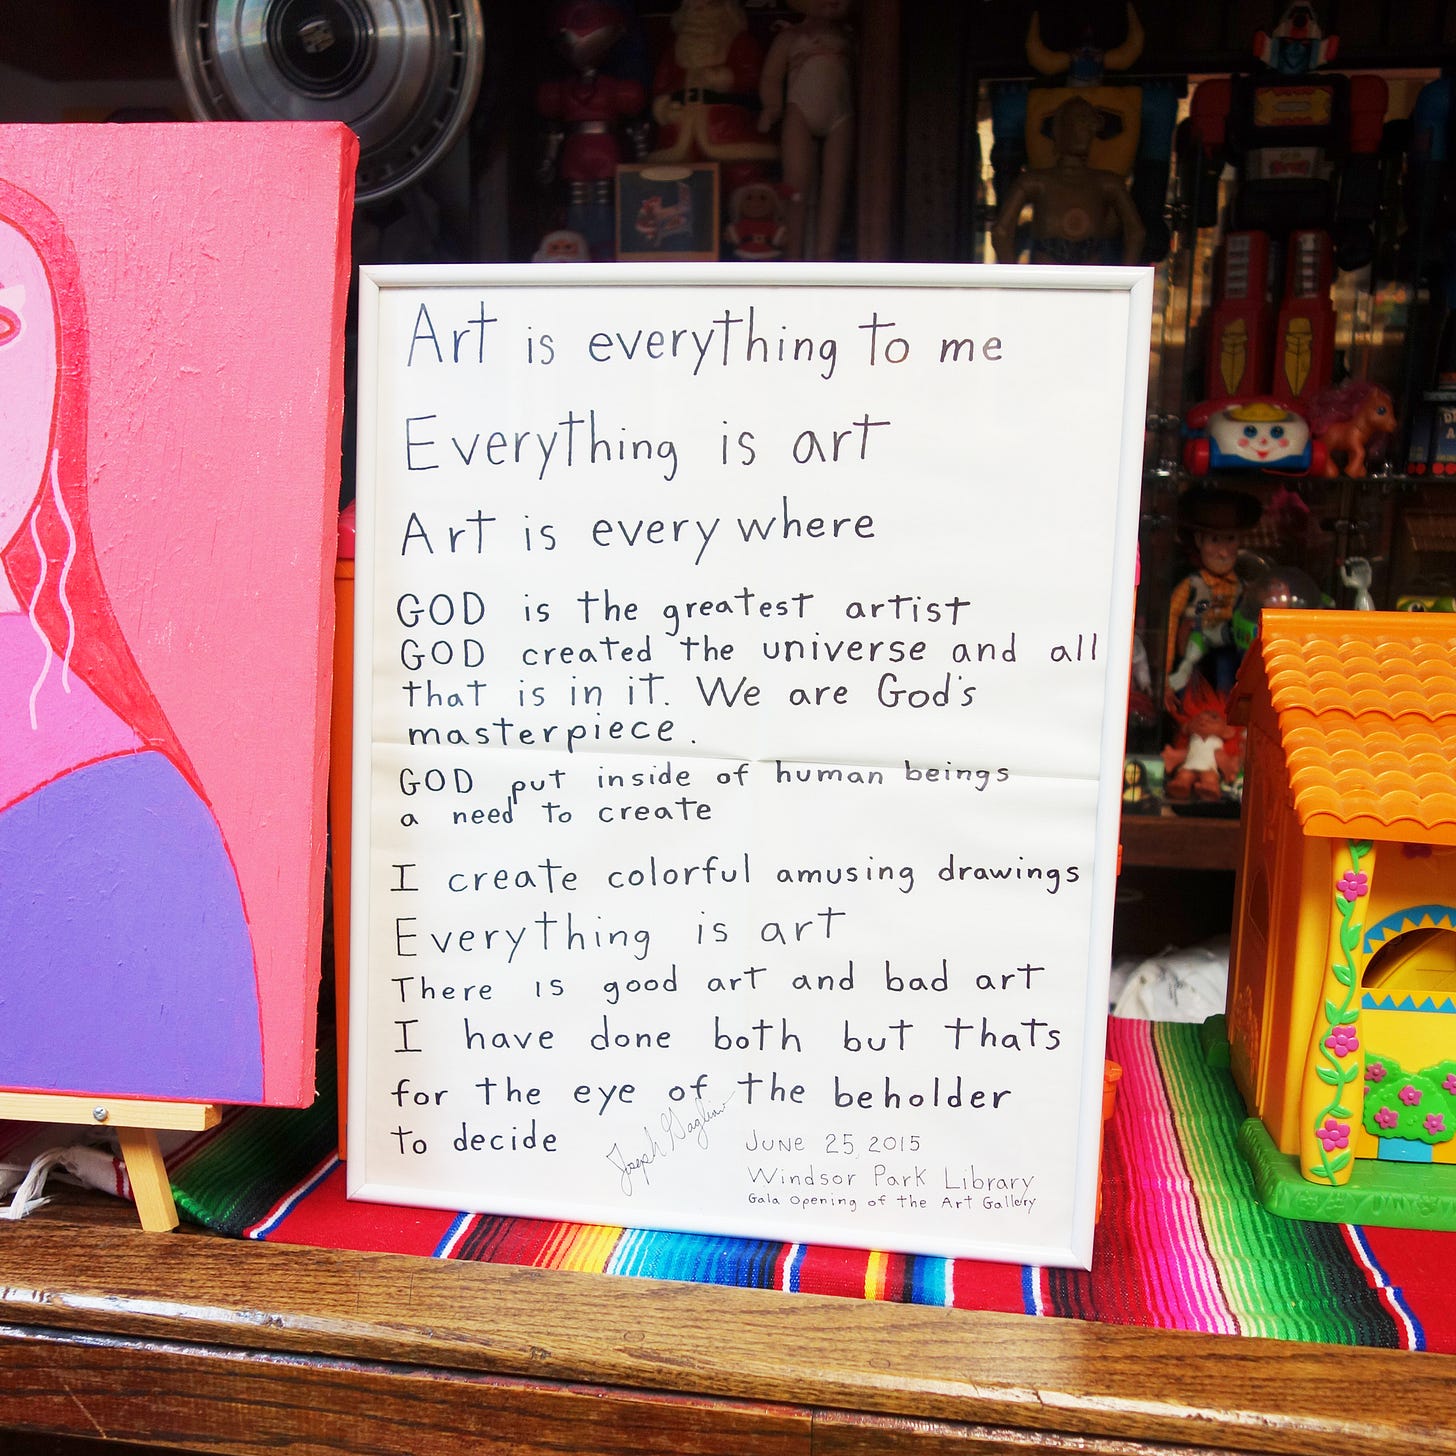 Art is everything to me
Everything is art
Art is everywhere
GOD is the greatest artist
GOD created the universe and all
that is in it. We are God's
masterpiece.
GOD put inside of human beings
a need to create
I create colorful amusing drawings
Everything is art
There is good art and bad art
I have done both but thats
for the eye of the beholder
to decide
Joseph
JUNE 25, 2015
Windsor Park Library
Gala Opening of the Art Gallery